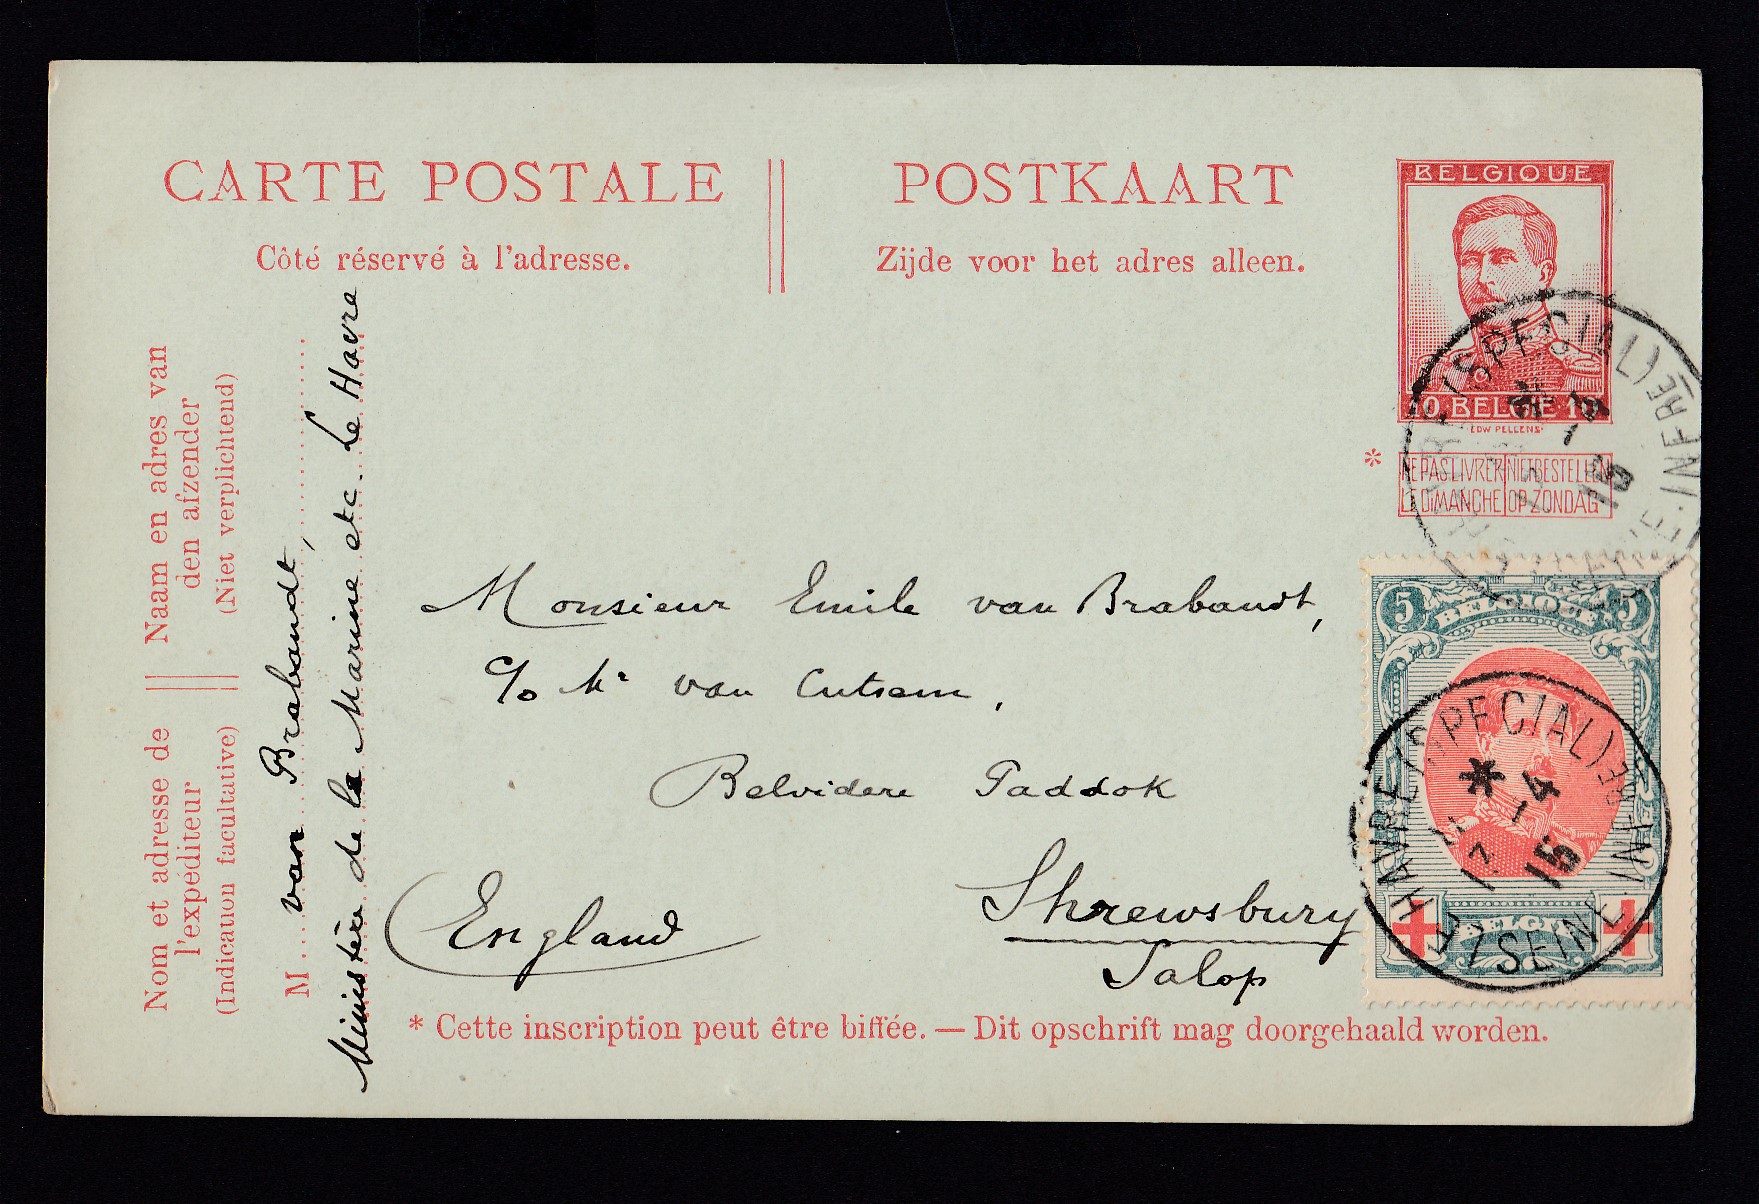 CARTE POSTALE
Côté réservé à l'adresse.
POSTKAART
Zijde voor het adres alleen.
BELGIQUE
10 BELGIE 10
EDW PELLENS
*
NE PAS LIVRER LE DIMANCHE
NIET BESTELLEN OP ZONDAG
LE HAVRE (SPECIAL)
SEINE. INFRE
4
15
Naam en adres van
den afzender
(Niet verplichtend)
Nom et adresse de
l'expéditeur
(Indication facultative)
M van Brabandt,
Ministère de la Marine etc. Le Havre
Monsieur Emile van Brabandt,
c/o Mr van Cutsem,
Belvidere Paddok
Shrewsbury
Salop
England
5 BELGIQUE 5
BELGIË
LE HAVRE (SPECIAL)
SEINE. INFRE
* 4
17
15
* Cette inscription peut être biffée. — Dit opschrift mag doorgehaald worden.